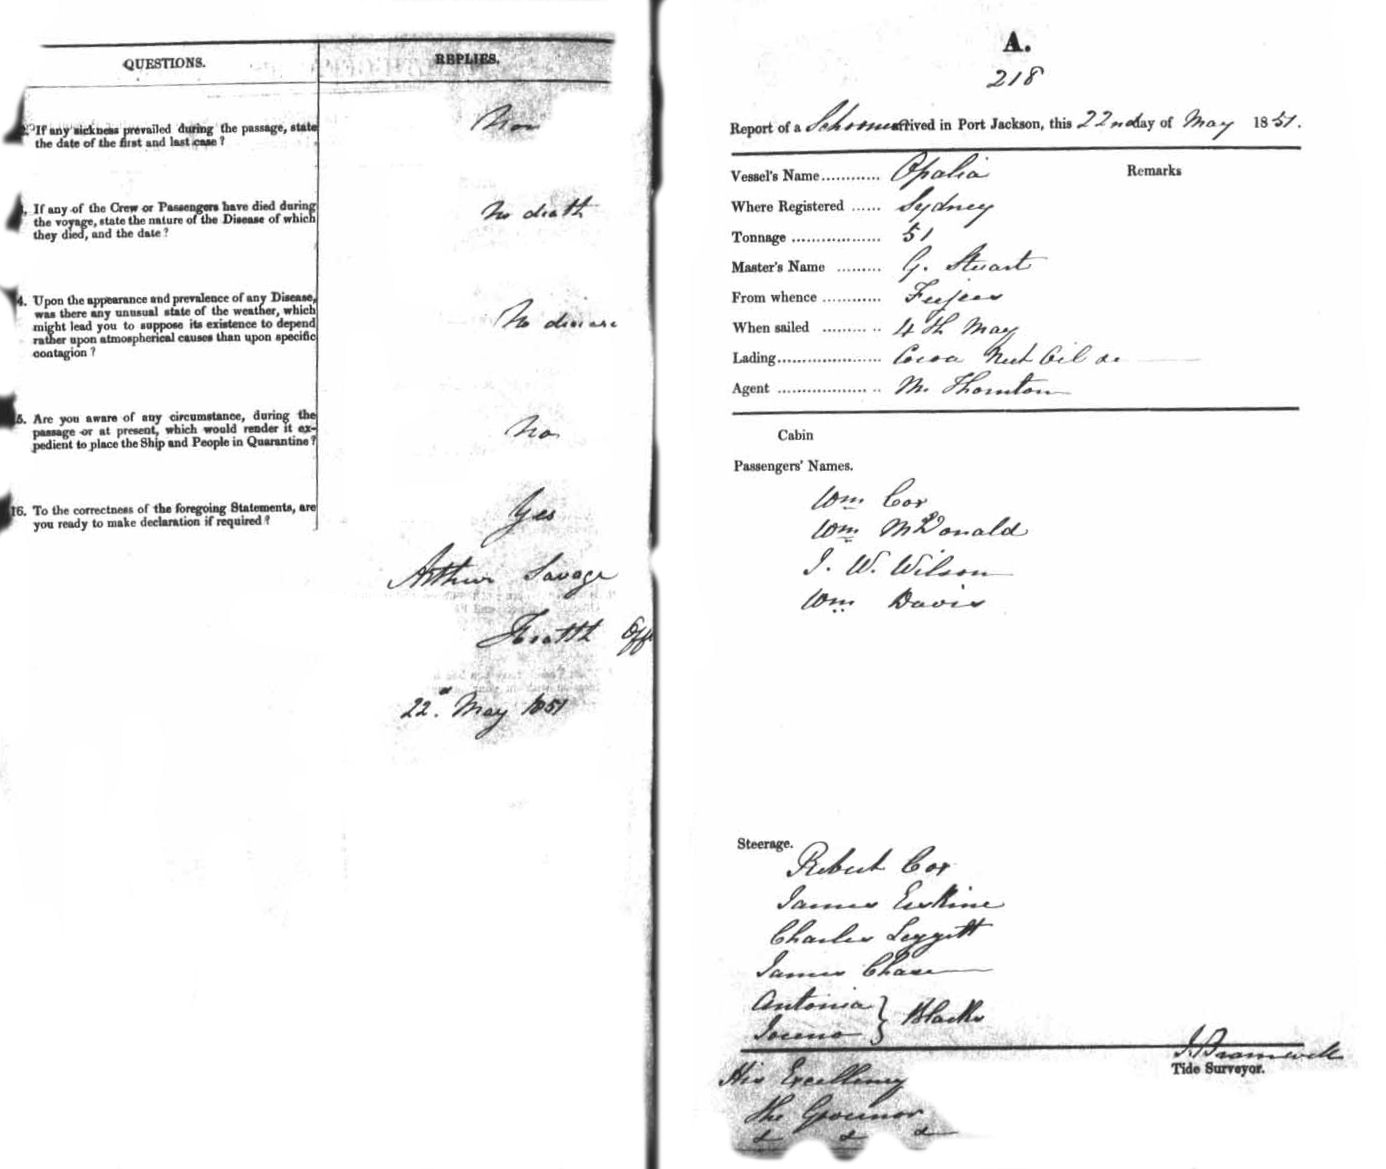 QUESTIONS.
REPLIES.
If any sickness prevailed during the passage, state
the date of the first and last case?
If any of the Crew or Passengers have died during
the voyage, state the nature of the Disease of which
they died, and the date?
No death
4. Upon the appearance and prevalence of any Disease,
was there any unusual state of the weather, which
might lead you to suppose its existence to depend
rather upon atmospherical causes than upon specific
contagion?
No disease
5. Are you aware of any circumstance, during the
passage or at present, which would render it ex-
pedient to place the Ship and People in Quarantine?
No
16. To the correctness of the foregoing Statements, are
you ready to make declaration if required?
Yes
Arthur Savage
Health Offr
22d May 1851
A.
218
Report of a Schooner arrived in Port Jackson, this 22nd day of May 1851.
Vessel's Name ............ Opalia
Remarks
Where Registered ...... Sydney
Tonnage .................. 51
Master's Name ......... G. Stuart
From whence ............ Feejees
When sailed ......... .. 4th May
Lading..................... Cocoa Nut Oil &c
Agent .................. .. M. Thornton
Cabin
Passengers' Names.
Wm Cox
Wm McDonald
J. W. Wilson
Wm Davis
Steerage.
Robert Cox
James Erskine
Charles Leggett
James Chase
Antonia } Blacks
J. Bramwell
Tide Surveyor.
His Excellency
the Governor
& & &